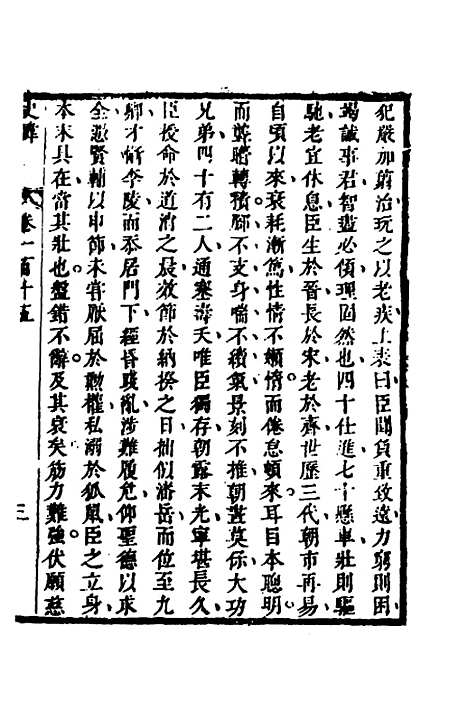 犯嚴加翦治玩之以老疾上表曰臣聞負重致遠力窮則困
竭誠事君智盡必傾理固然也四十仕進七十懸車壯則驅
馳老宜休息臣生於晉長於宋老於齊世歷三代朝市再易
自頃以來衰耗漸篤性情不懶惰而倦怠頓來耳目本聰明
而聾瞶轉積腳不支身喘不續氣景刻不推朝晝莫保大功
兄弟四十有二人通塞壽夭唯臣獨存朝露末光寧堪長久
臣授命於道消之晨效節於納揆之日拙似潘岳而位至九
卿才慚李陵而忝居門下經昏踐亂涉難履危仰聖德以求
全憑賢輔以申節未嘗厭屈於勲權私溺於狐鼠臣之立身
本末具在當其壯也盤錯不辭及其衰矣筋力難強伏願慈
卷一百十五
三